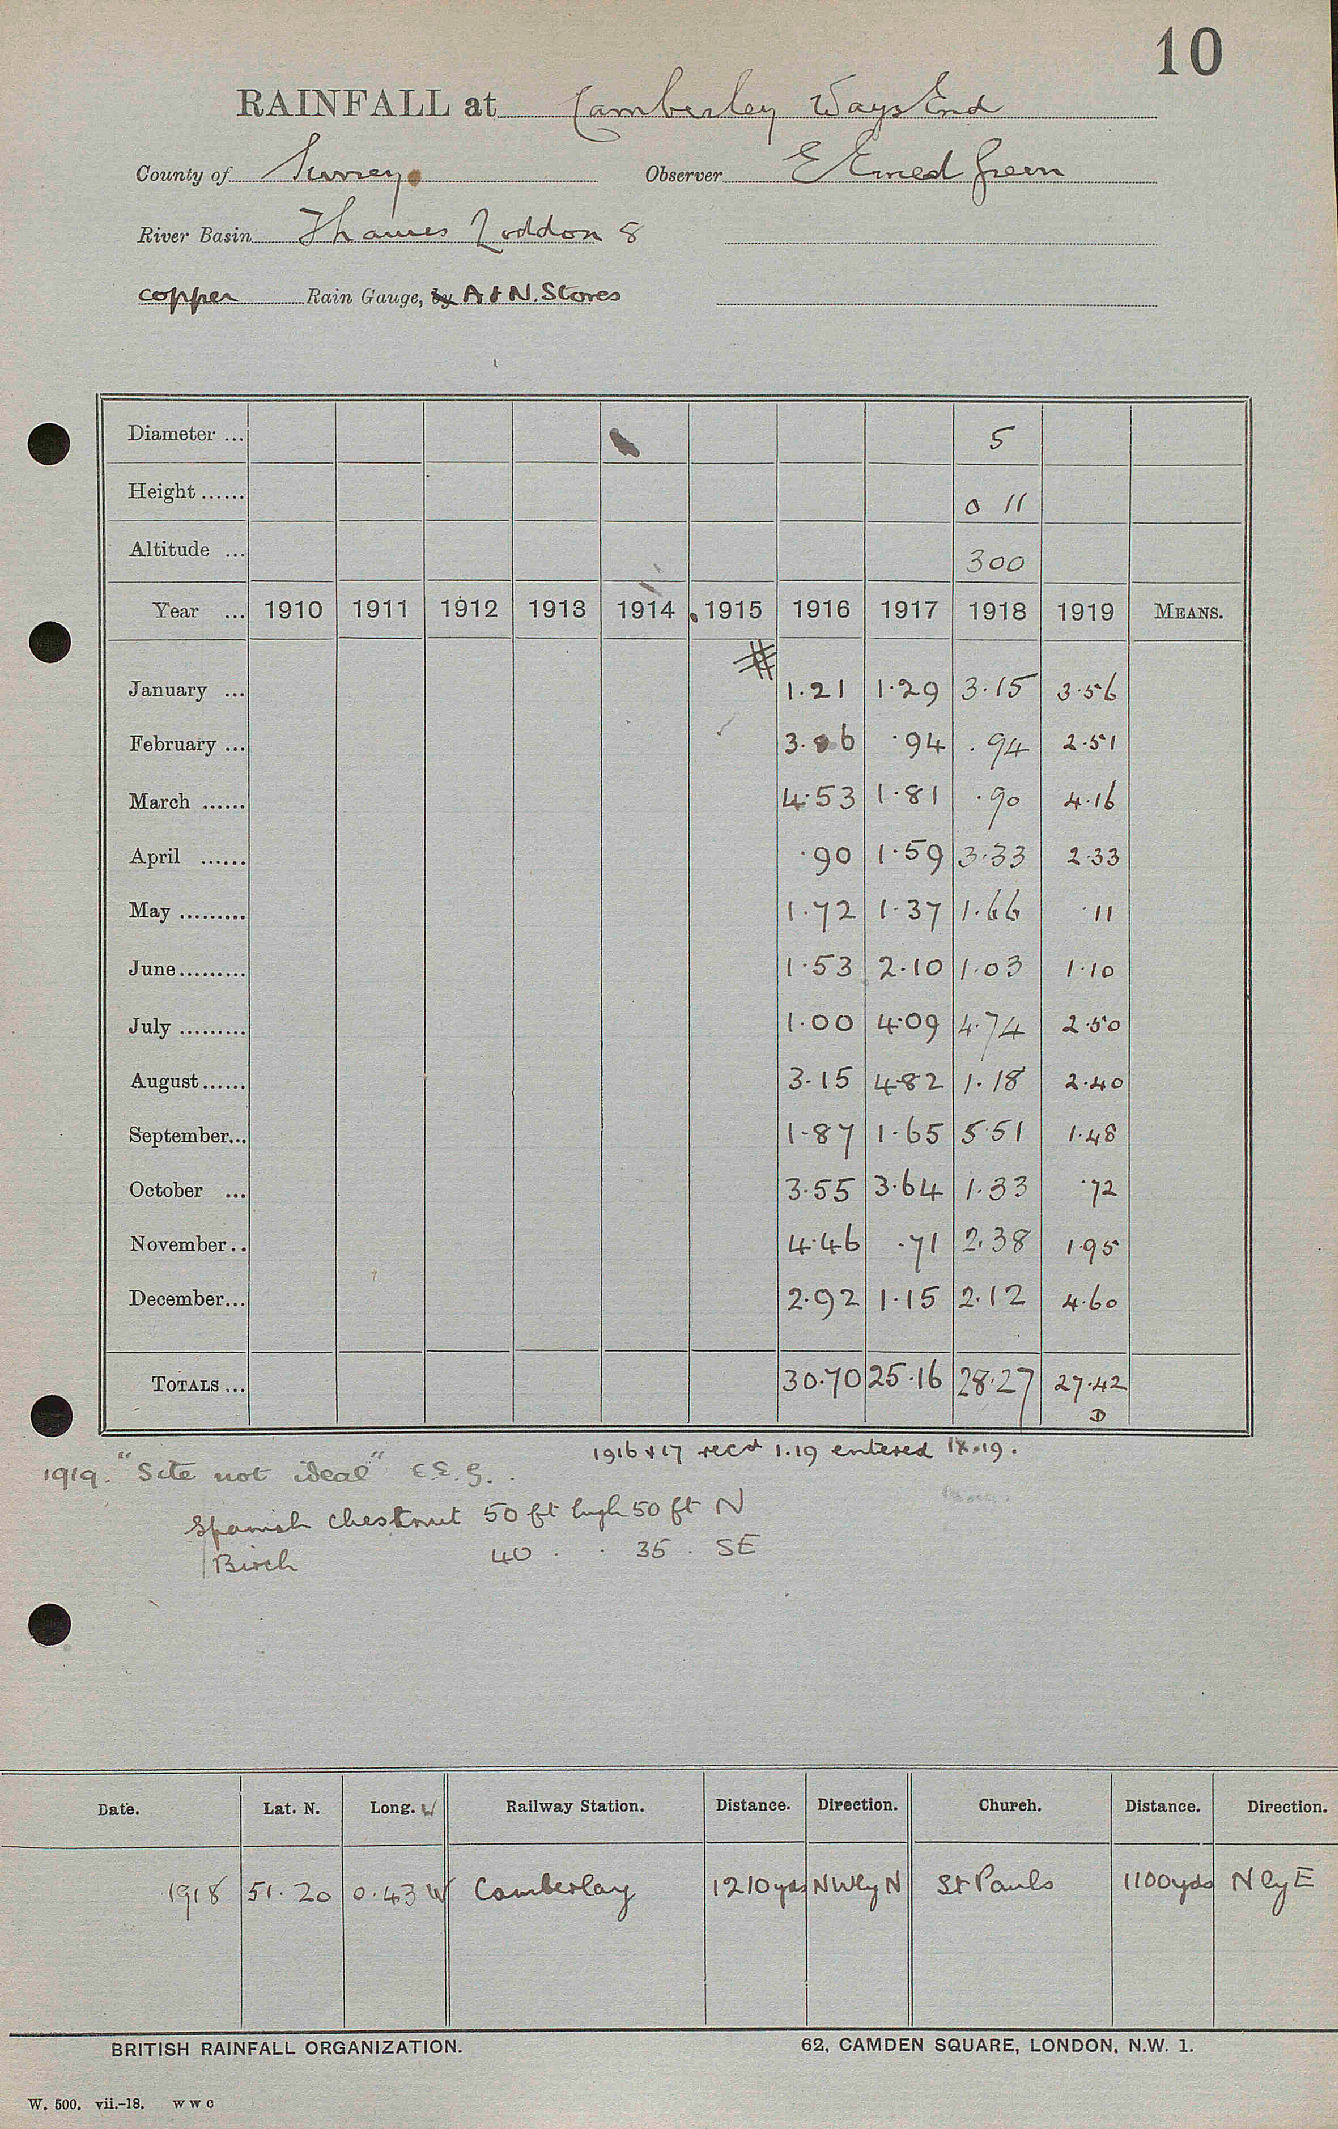 10
RAINFALL at Camberley Ways End
County of Surrey Observer E Ernest Green
River Basin Thames Loddon 8
copper Rain Gauge, by A & N. Stores
Diameter ... 5
Height ...... 0 11
Altitude ... 300
Year ... 1910 1911 1912 1913 1914 1915 1916 1917 1918 1919 MEANS.
#
January ... 1.21 1.29 3.15 3.56
February ... 3.86 .94 .94 2.51
March ...... 4.53 1.81 .90 4.16
April ...... .90 1.59 3.33 2.33
May ......... 1.72 1.37 1.66 .11
June ......... 1.53 2.10 1.03 1.10
July ......... 1.00 4.09 4.74 2.50
August ...... 3.15 4.82 1.18 2.40
September... 1.87 1.65 5.51 1.48
October ... 3.55 3.64 1.33 .72
November .. 4.46 .71 2.38 1.95
December... 2.92 1.15 2.12 4.60
TOTALS ... 30.70 25.16 28.27 27.42
D
1916 & 17 recd 1.19 entered IX.19.
1919. "Site not ideal" E.E.G.
Spanish chestnut 50 ft high 50 ft N
Birch 40 . . 35 . SE
Date. Lat. N. Long. W Railway Station. Distance. Direction. Church. Distance. Direction.
1918 51.20 0.43 W Camberley 1210 yds NW by N St Pauls 1100 yds N by E
BRITISH RAINFALL ORGANIZATION. 62, CAMDEN SQUARE, LONDON, N.W. 1.
W. 500. vii.-18. W W C